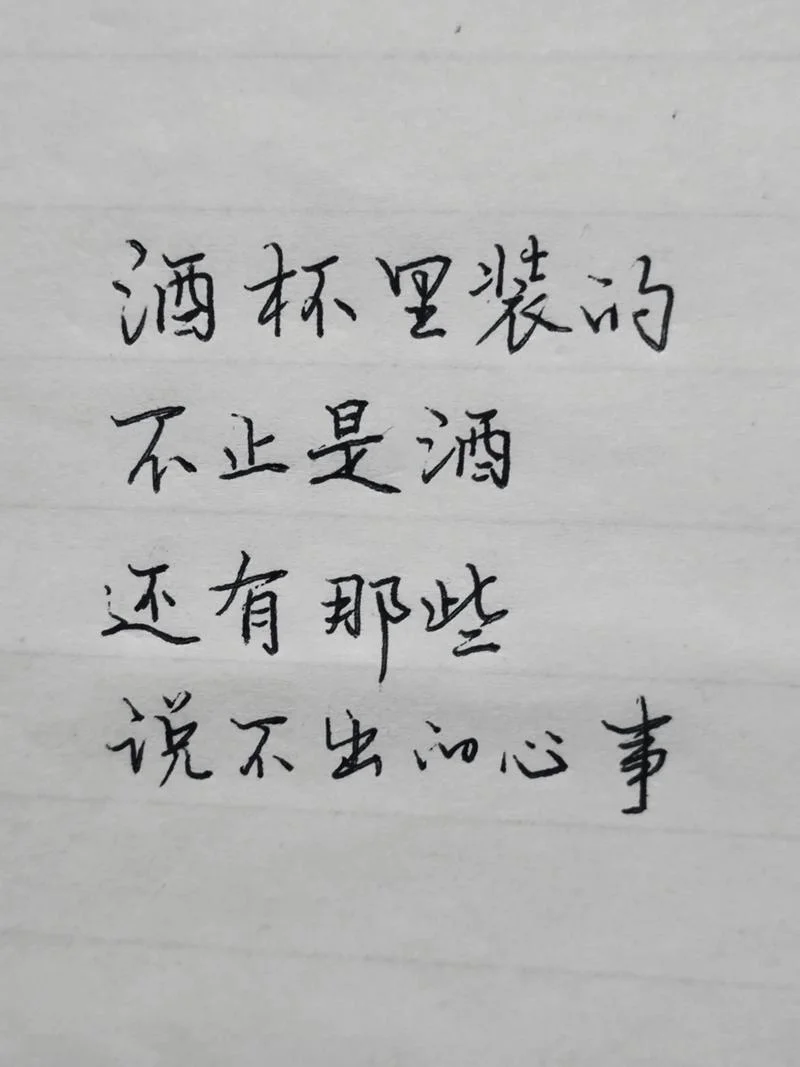 酒杯里装的
不止是酒
还有那些
说不出的心事